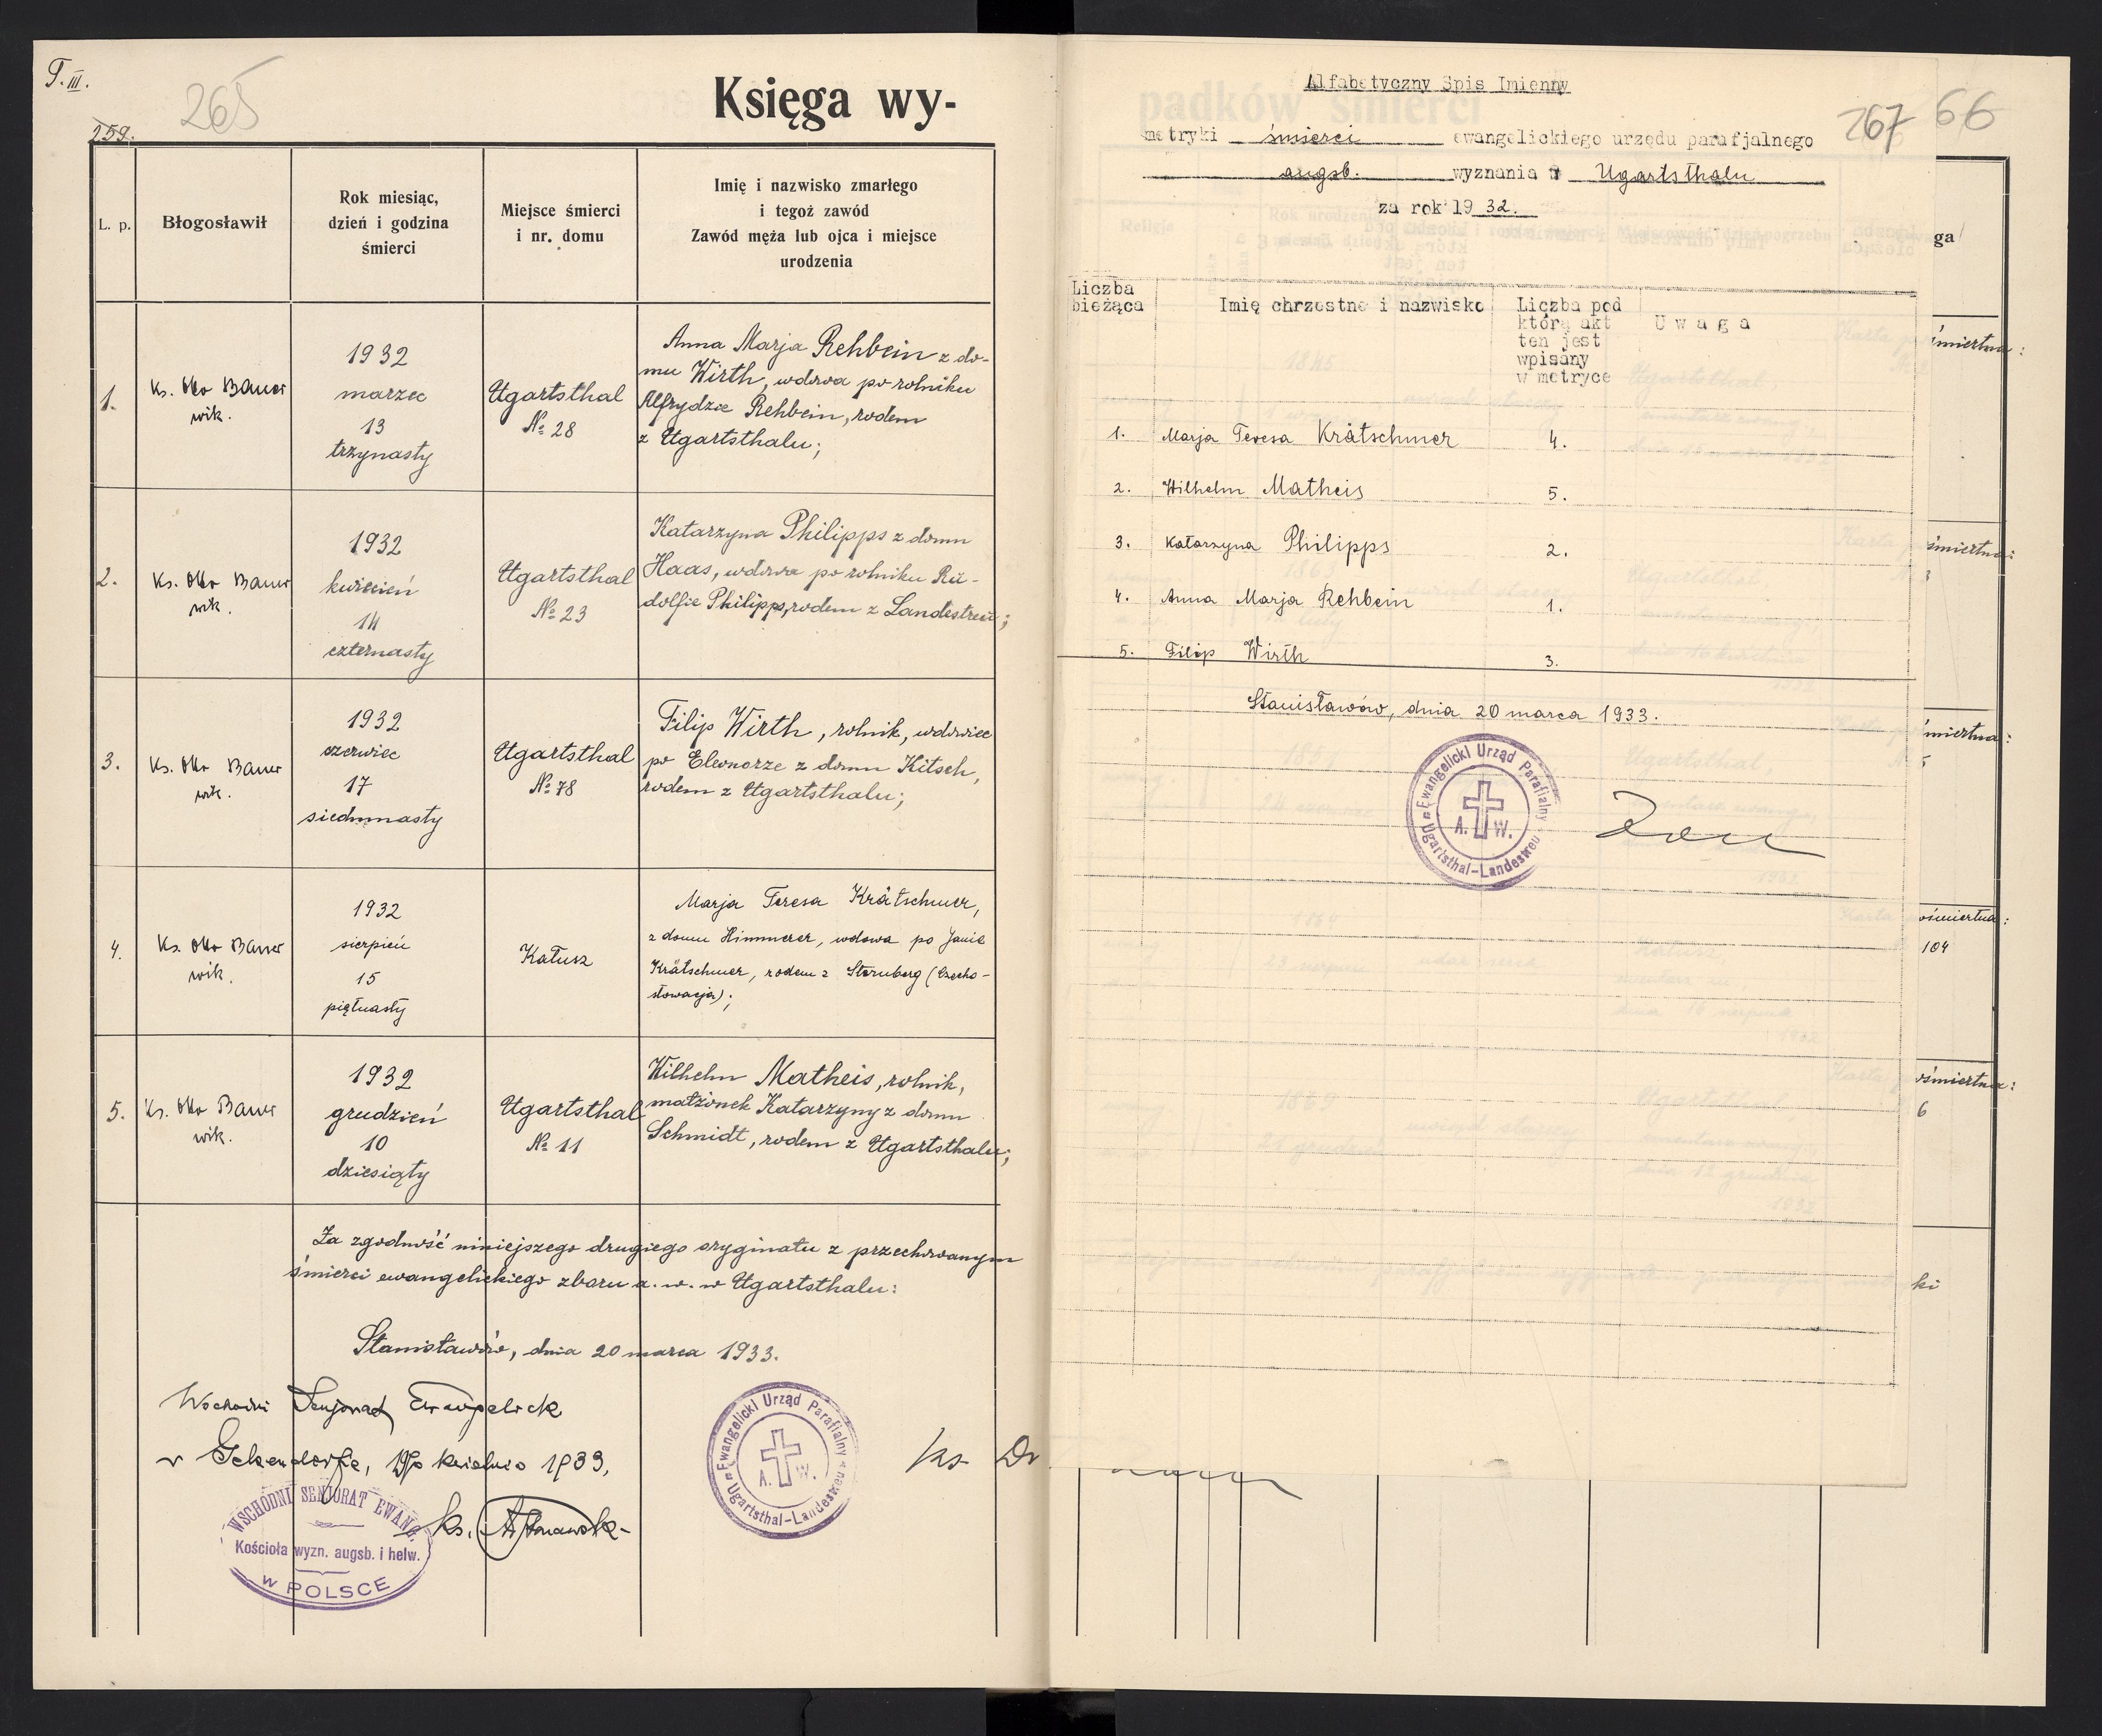 T. III.
265
259.
Księga wy-
L. p.
Błogosławił
Rok miesiąc,
dzień i godzina
śmierci
Miejsce śmierci
i nr. domu
Imię i nazwisko zmarłego
i tegoż zawód
Zawód męża lub ojca i miejsce
urodzenia
1.
Ks. Otto Bauer
wik.
1932
marzec
13
trzynasty
Ugartsthal
№ 28
Anna Marja Rehbein z do-
mu Wirth, wdowa po rolniku
Alfrydzie Rehbein, rodem
z Ugartsthalu;
2.
Ks. Otto Bauer
wik.
1932
kwiecień
14
czternasty
Ugartsthal
№ 23
Katarzyna Philipps z domu
Haas, wdowa po rolniku Ru-
dolfie Philipps, rodem z Landestreu;
3.
Ks. Otto Bauer
wik.
1932
czerwiec
17
siedmnasty
Ugartsthal
№ 78
Filip Wirth, rolnik, wdowiec
po Eleonorze z domu Kitsch,
rodem z Ugartsthalu;
4.
Ks. Otto Bauer
wik.
1932
sierpień
15
piętnasty
Kałusz
Marja Teresa Krätschmer,
z domu Himmerer, wdowa po Janie
Krätschmer, rodem z Sternberg (Czecho-
słowacja);
5.
Ks. Otto Bauer
wik.
1932
grudzień
10
dziesiąty
Ugartsthal
№ 11
Wilhelm Matheis, rolnik,
małżonek Katarzyny z domu
Schmidt, rodem z Ugartsthalu;
Za zgodność niniejszego drugiego oryginału z przechowanym
śmierci ewangelickiego zboru a. w. w Ugartsthalu:
Stanisławów, dnia 20 marca 1933.
Wschodni Senjorat Ewangelick
w kwietnia 1933,
WSCHODNI SENJORAT EWANG.
Kościoła wyzn. augsb. i helw.
w POLSCE
ks.
Ewangelicki Urząd Parafialny
A. W.
Ugartsthal-Landestreu
ks Dr
Alfabetyczny Spis Imienny
metryki śmierci ewangelickiego urzędu parafjalnego
267 66
augsb. wyznania w Ugartsthalu
za rok 1932.
Liczba
bieżąca
Imię chrzestne i nazwisko
Liczba pod
którą akt
ten jest
wpisany
w metryce
U w a g a
1. Marja Teresa Krätschmer 4.
2. Wilhelm Matheis 5.
3. Katarzyna Philipps 2.
4. Anna Marja Rehbein 1.
5. Filip Wirth 3.
Stanisławów, dnia 20 marca 1933.
Ewangelicki Urząd Parafialny
A. W.
Ugartsthal-Landestreu
ga
śmiertna:
śmiertna:
3
śmiertna:
5
ośmiertna:
104
ośmiertna:
6
ki